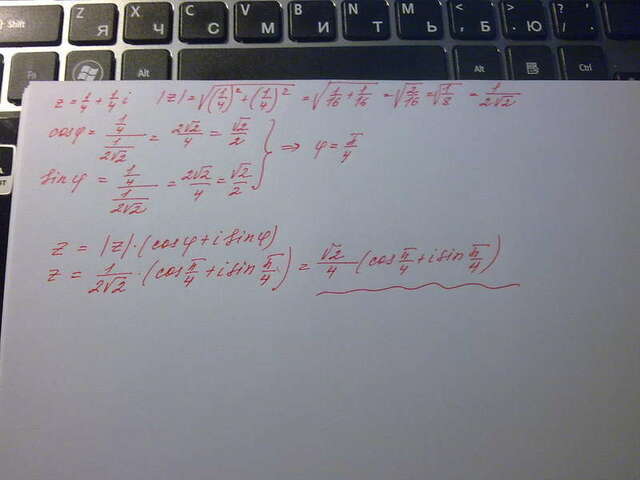 Shift Z Я X Ч C С V М B И N Т M Ь < , Б > . Ю ? / .
Fn Alt Alt Ctrl
Shift
z = 1/4 + 1/4 i |z| = √((1/4)² + (1/4)²) = √(1/16 + 1/16) = √(2/16) = √(1/8) = 1/(2√2)
cosφ = (1/4)/(1/(2√2)) = 2√2/4 = √2/2
} ⇒ φ = π/4
sinφ = (1/4)/(1/(2√2)) = 2√2/4 = √2/2
z = |z|·(cosφ + i sinφ)
z = 1/(2√2)·(cos π/4 + i sin π/4) = √2/4 (cos π/4 + i sin π/4)